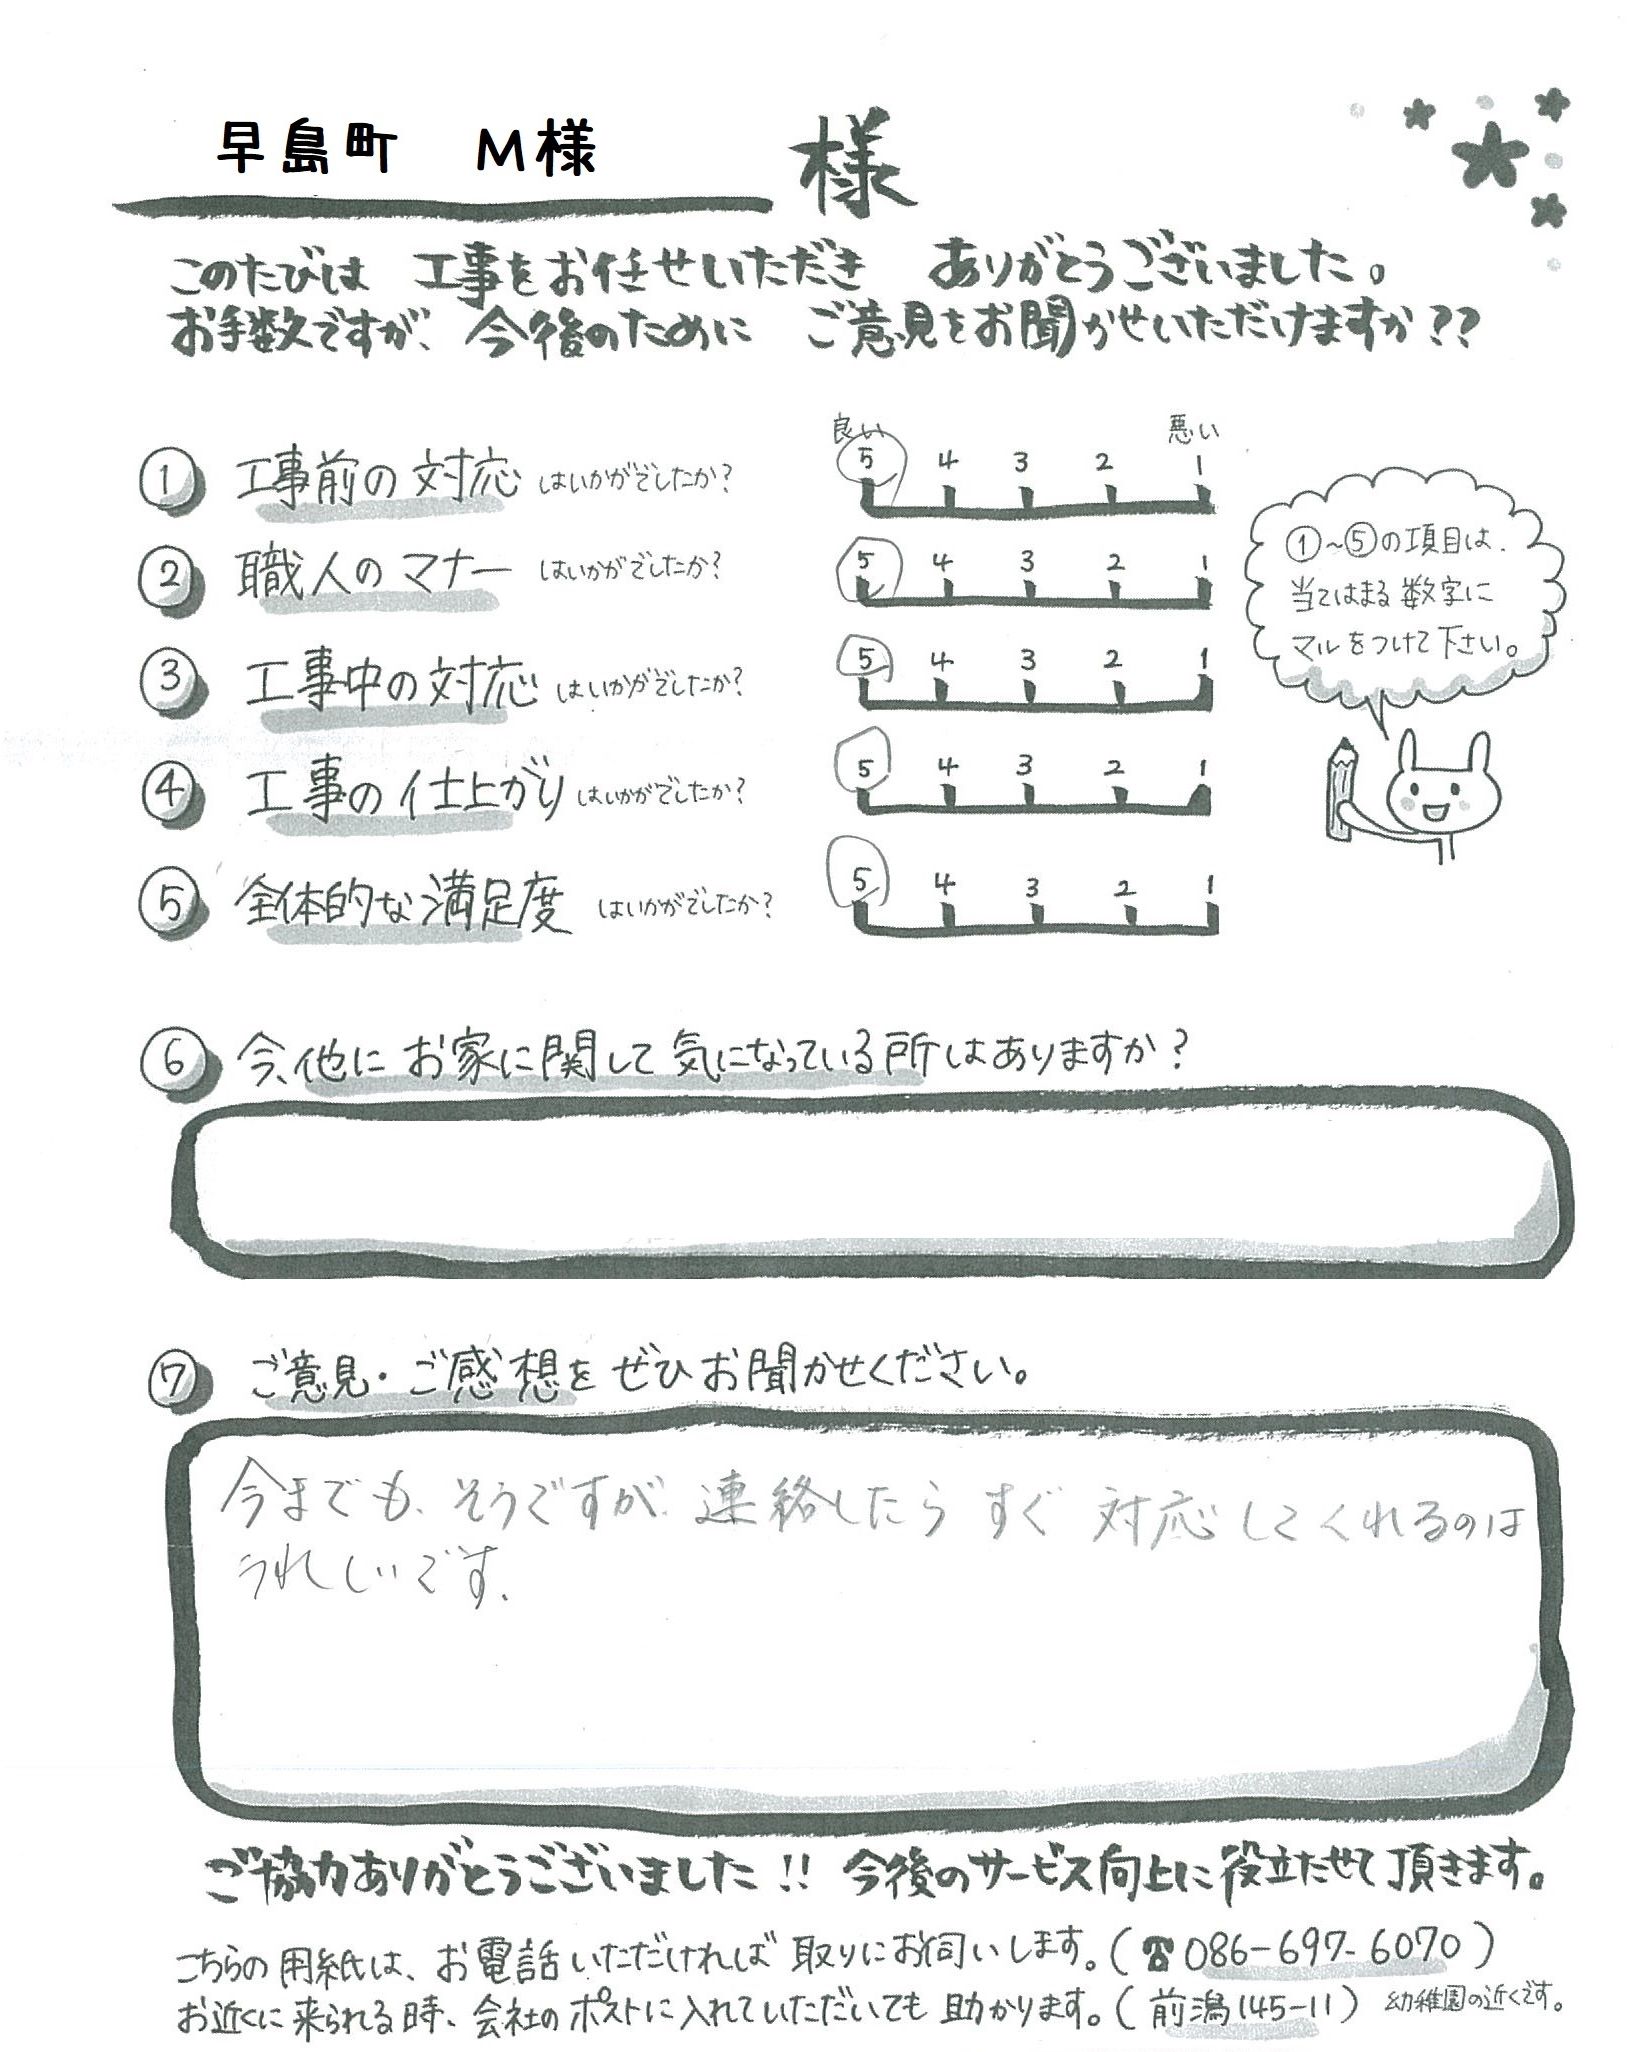 早島町 M様 様
このたびは 工事をお任せいただき ありがとうございました。
お手数ですが、今後のために ご意見をお聞かせいただけますか??
良い 悪い
① 工事前の対応 はいかがでしたか? 5 4 3 2 1
② 職人のマナー はいかがでしたか? 5 4 3 2 1
③ 工事中の対応 はいかがでしたか? 5 4 3 2 1
④ 工事の仕上がり はいかがでしたか? 5 4 3 2 1
⑤ 全体的な満足度 はいかがでしたか? 5 4 3 2 1
①~⑤の項目は、
当てはまる数字に
マルをつけて下さい。
⑥ 今、他にお家に関して気になっている所はありますか?
⑦ ご意見・ご感想をぜひお聞かせください。
今までも、そうですが、連絡したら すぐ 対応してくれるのは
うれしいです。
ご協力ありがとうございました!! 今後のサービス向上に役立たせて頂きます。
こちらの用紙は、お電話いただければ取りにお伺いします。(☎086-697-6070)
お近くに来られる時、会社のポストに入れていただいても助かります。(前潟145-11) 幼稚園の近くです。